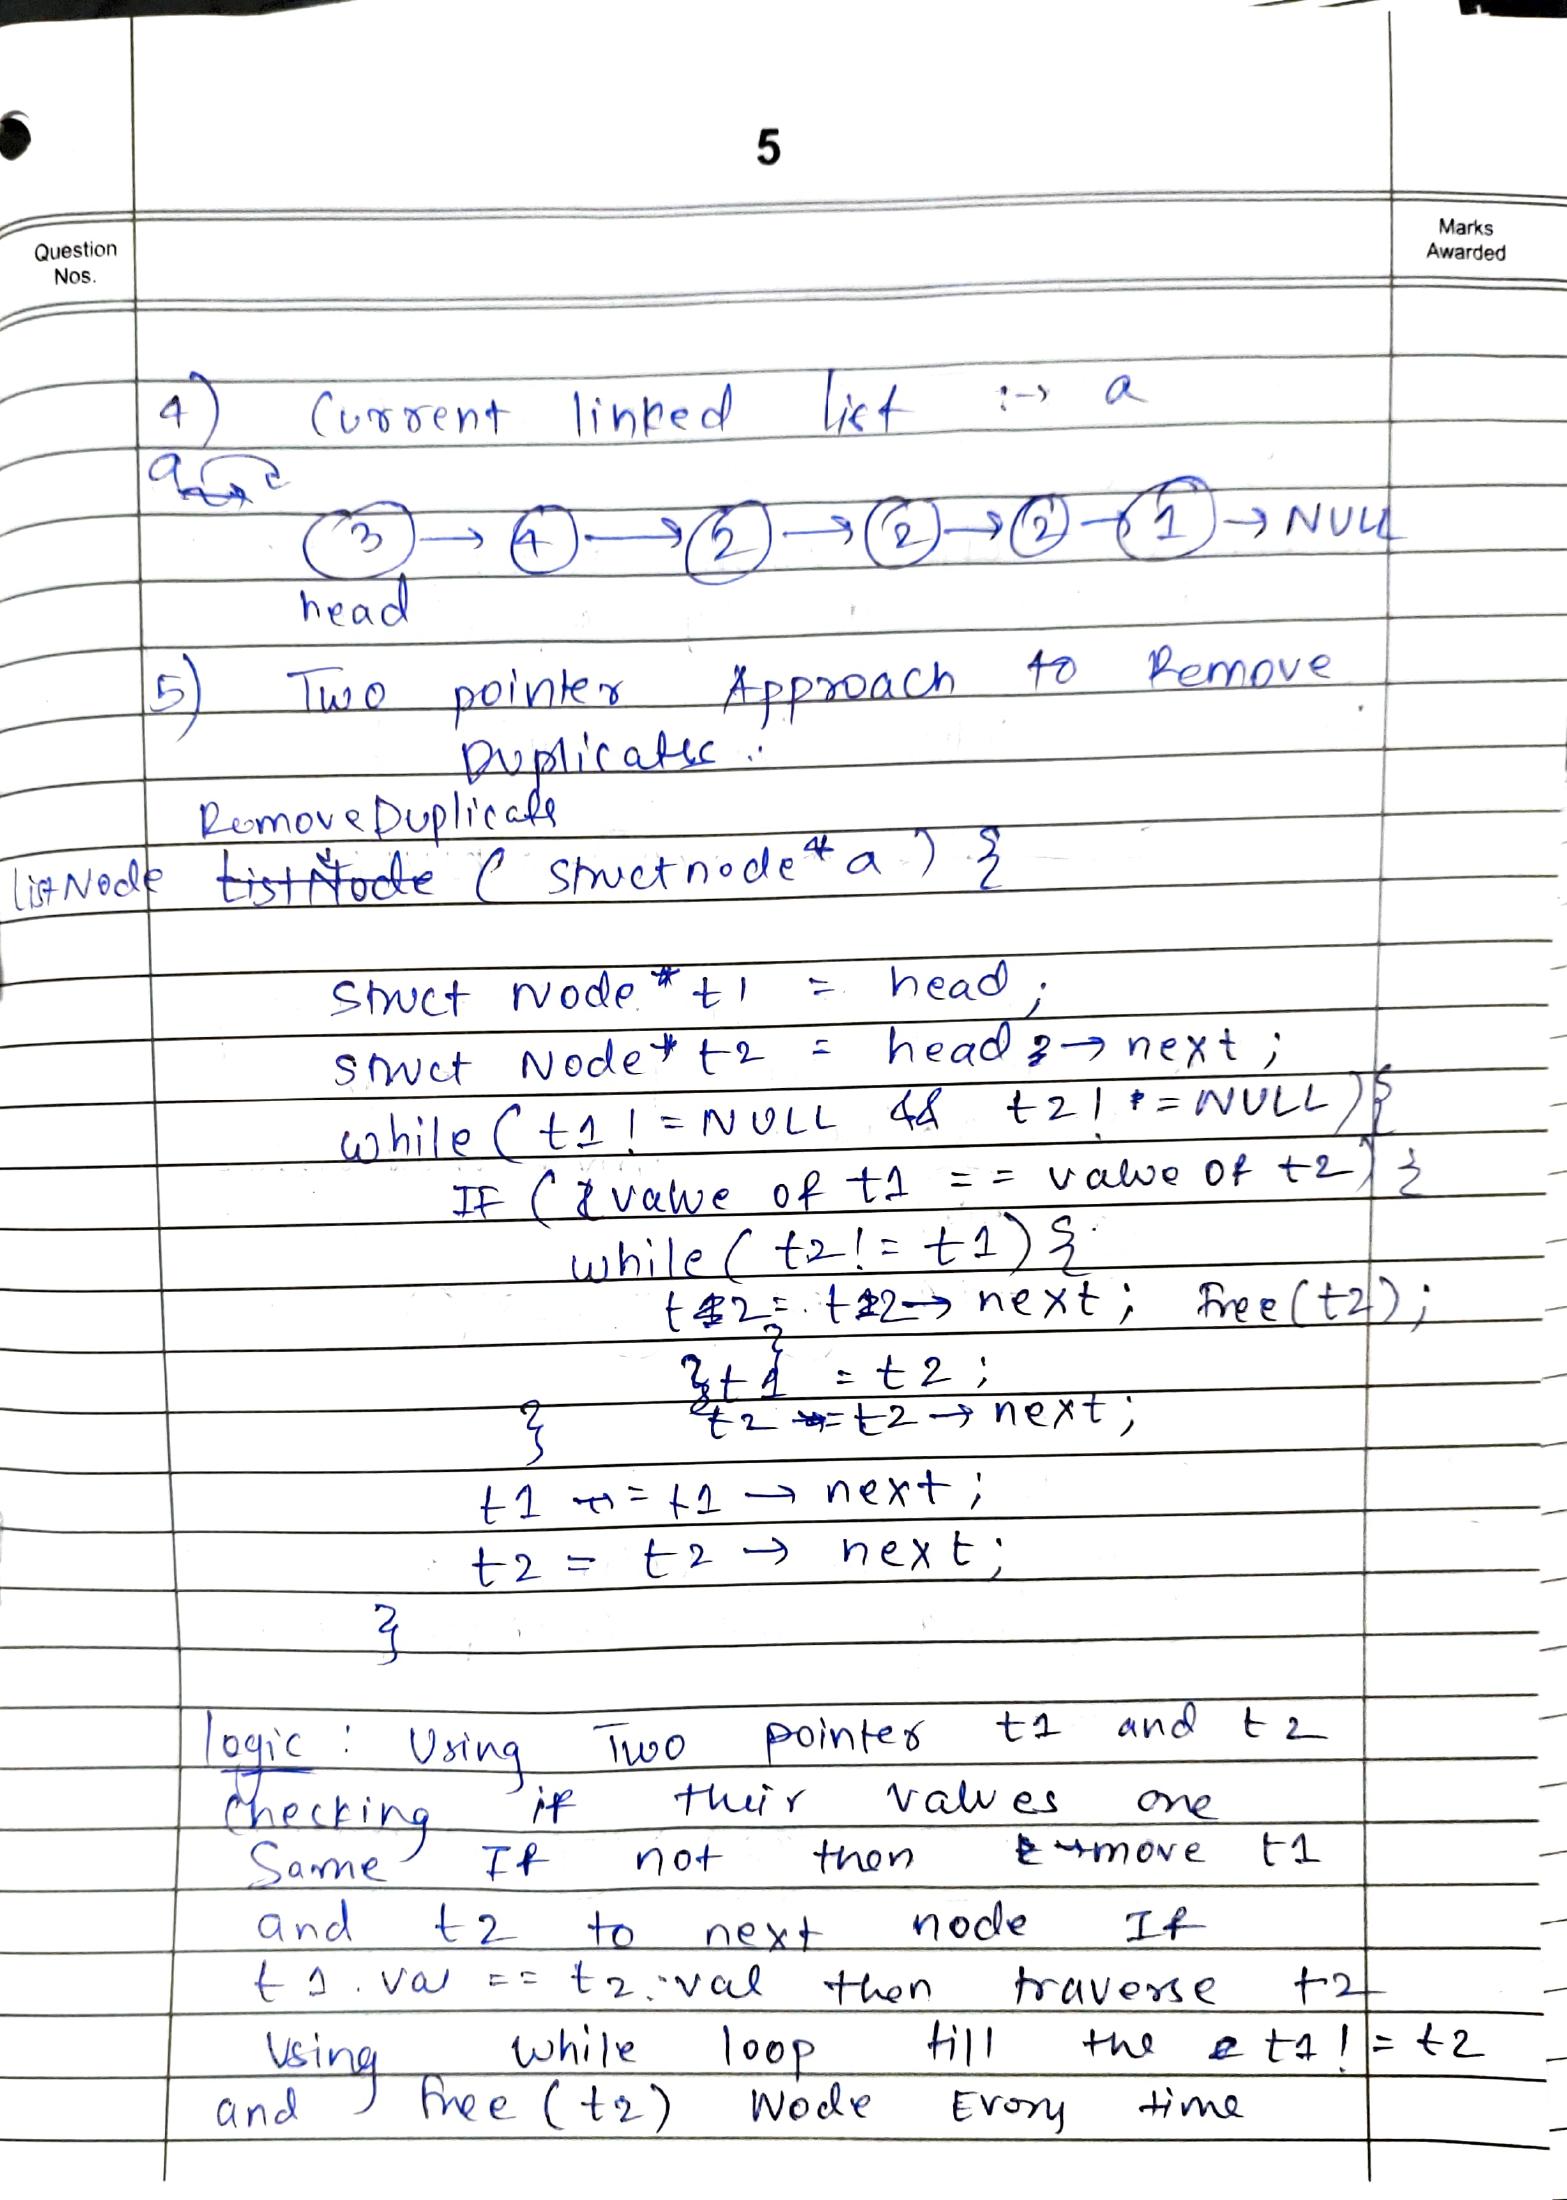 5
Question
Nos.
Marks
Awarded
4) Current linked list :→ a
a
3 → 4 → 2 → 2 → 2 → 1 → NULL
head
5) Two pointer Approach to Remove
Duplicates :
RemoveDuplicate
listNode ListNode ( struct node* a ) {
struct Node* t1 = head;
struct Node* t2 = head → next;
while (t1 != NULL && t2 != NULL) {
IF ( value of t1 == value of t2) {
while ( t2 != t1) {
t2 = t2 → next; Free(t2);
}
t1 = t2;
t2 = t2 → next;
}
t1 = t1 → next;
t2 = t2 → next;
}
logic : Using Two pointer t1 and t2
Checking if their values one
Same If not then move t1
and t2 to next node If
t1.val == t2.val then traverse t2
Using while loop till the t1 != t2
and free (t2) Node Every time